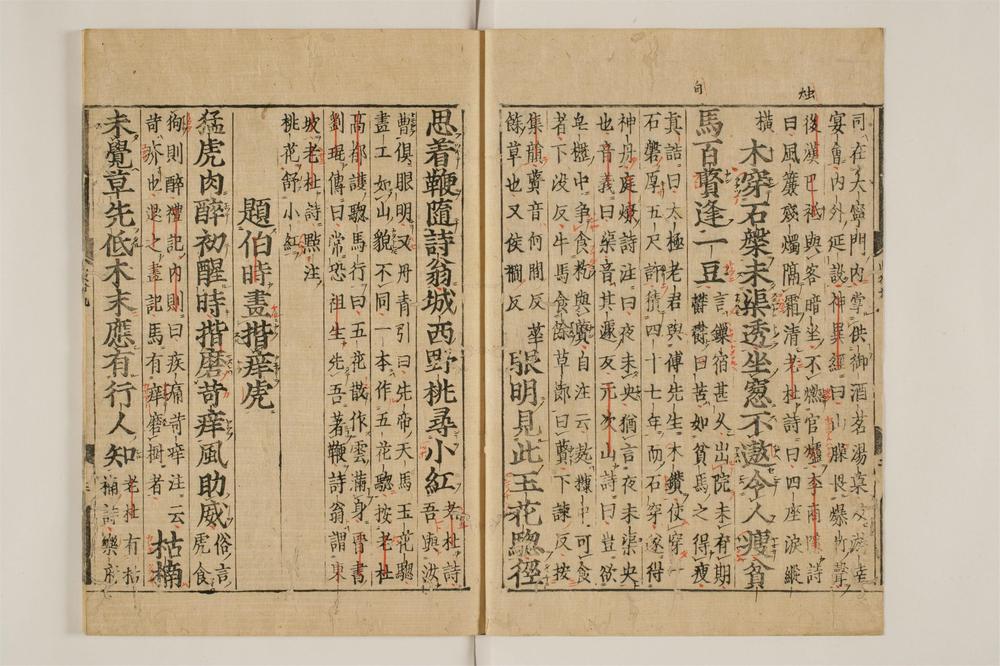 烛
自
司在大寧門内掌供御酒茗湯菓及游幸
宴會内外延設神異經曰山臊畏爆竹聲
後漢巴祗與客暗坐不燃官爐李商隱詩
曰風簾殘燭隔霜清老杜詩曰四座淚縱
橫
木穿石槃未渠透坐窻不遨令人瘦貧
馬百䕸逢一豆
言鏁宿甚久出院未有期
曰苦如貧馬之得瘦
真誥曰太極老君與傅先生木鑽使穿一
石磐厚五尺許積四十七年而石穿遂得
神丹庭燎詩注曰夜未央猶言夜未渠央
也音義曰渠音其遽反元次山詩曰豈欲
皁櫪中争食麧與䕸自注云麧糠中可食
者下没反牛馬食餘草節曰䕸下諫反按
集韻䕸音何間反莝
餘草也又侯襉反
張明見此玉花驄徑
思着鞭隨詩翁城西野桃尋小紅
老杜詩
吾與汝
曹俱眼明又丹青引曰先帝天馬玉花驄
畫工如山貌不同一本作五花驄按老杜
高都護驄馬行曰五花散作雲滿身晉書
劉琨傳曰常恐祖生先吾著鞭詩翁謂東
坡老杜詩㸃注
桃花舒小紅
題伯時畫揩痒虎
猛虎肉醉初醒時揩磨苛痒風助威
俗言
虎食
狗則醉禮記内則曰疾痛苛痒注云
苛疥也退之畫記馬有痒磨樹者
枯楠
未覺草先低木末應有行人知
老杜有枯
楠詩樂府